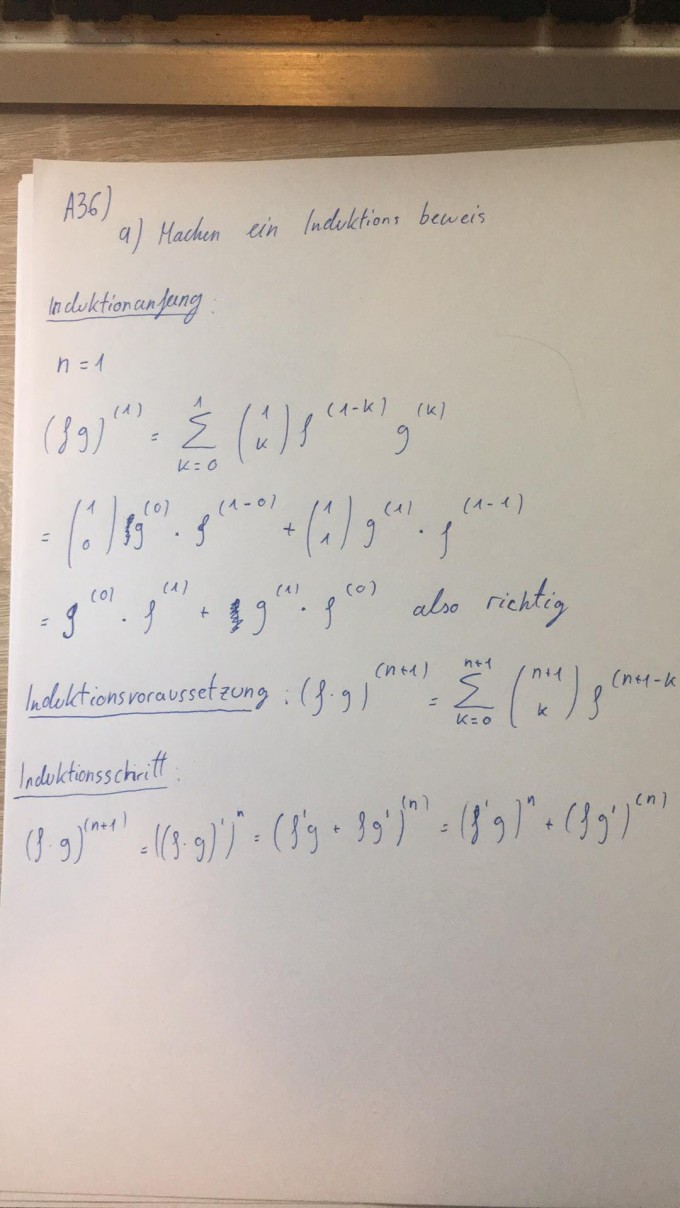 A36)
a) Machen ein Induktions beweis
Induktionanfang:
n = 1
(f g)^(1) = Σ_{k=0}^{1} (1 über k) f^(1-k) g^(k)
= (1 über 0) g^(0) · f^(1-0) + (1 über 1) g^(1) · f^(1-1)
= g^(0) · f^(1) + g^(1) · f^(0) also richtig
Induktionsvoraussetzung: (f·g)^(n+1) = Σ_{k=0}^{n+1} (n+1 über k) f^(n+1-k
Induktionsschritt:
(f·g)^(n+1) = ((f·g)')^n = (f'g + fg')^(n) = (f'g)^n + (fg')^(n)